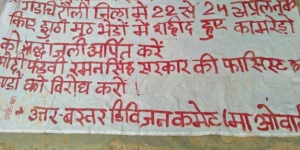 गडचिरोली जिला में 22 से 24 अप्रैल तक
किए झूठी मुठभेडों में शहीद हुए कामरेडों
को श्रद्धांजली अर्पित करें
मोदी फडवी रमनसिंह सरकार की फासिस्ट
का विरोध करो !
- उत्तर-बस्तर डिविजन कमेटी (माओवा